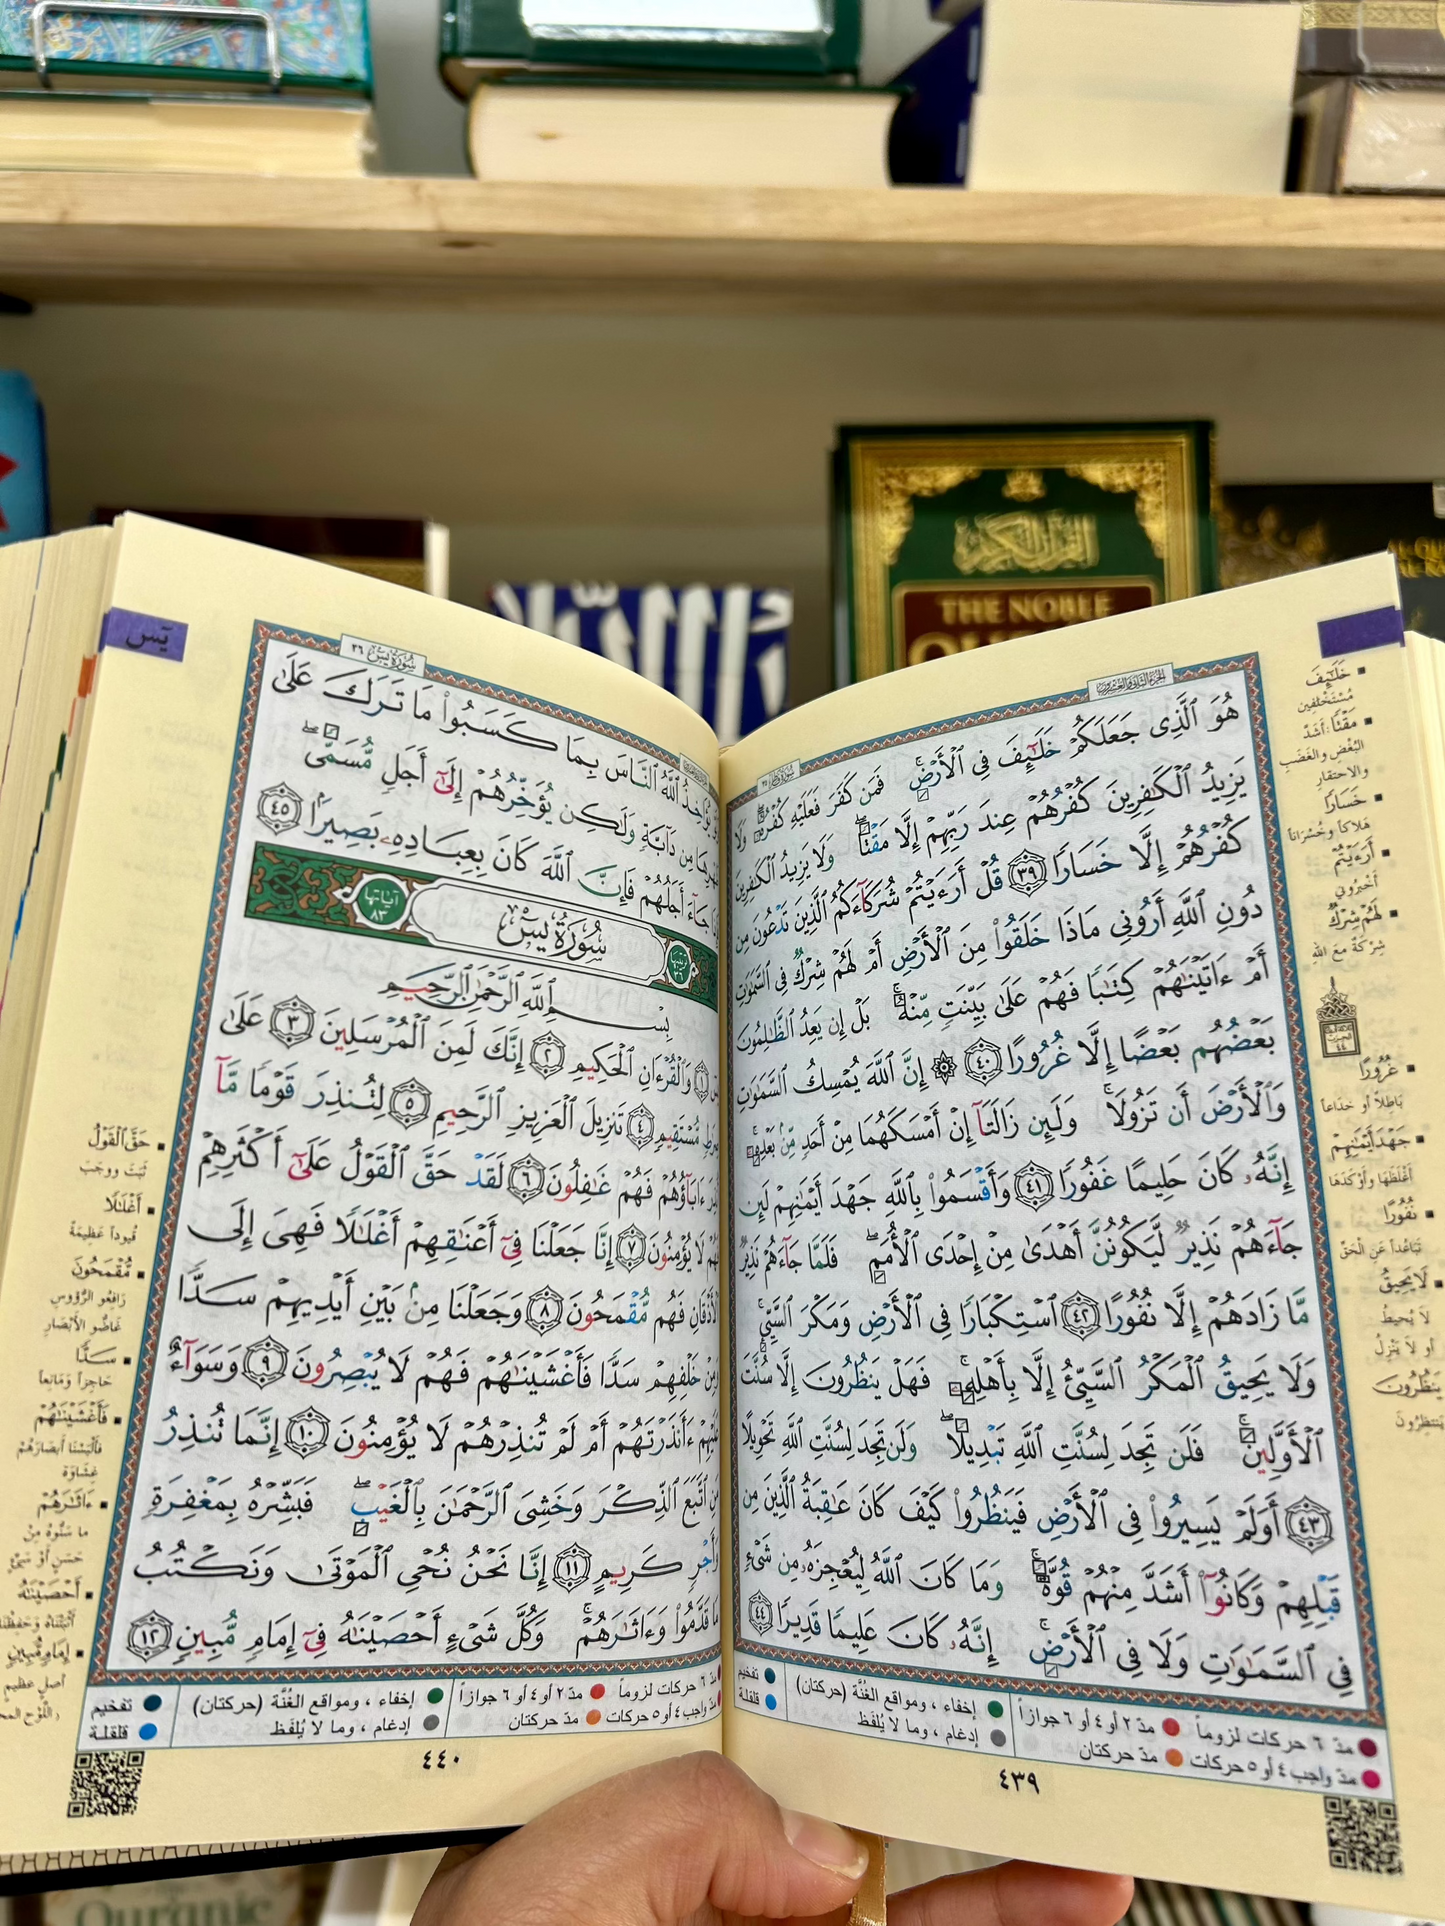 القرآن الكريم
THE NOBLE
الجزء الثاني والعشرون
هُوَ ٱلَّذِى جَعَلَكُمْ خَلَـٰٓئِفَ فِى ٱلْأَرْضِ ۚ فَمَن كَفَرَ فَعَلَيْهِ كُفْرُهُۥ ۖ وَلَا
يَزِيدُ ٱلْكَـٰفِرِينَ كُفْرُهُمْ عِندَ رَبِّهِمْ إِلَّا مَقْتًا ۖ وَلَا يَزِيدُ ٱلْكَـٰفِرِينَ
كُفْرُهُمْ إِلَّا خَسَارًا ٣٩ قُلْ أَرَءَيْتُمْ شُرَكَآءَكُمُ ٱلَّذِينَ تَدْعُونَ مِن
دُونِ ٱللَّهِ أَرُونِى مَاذَا خَلَقُوا۟ مِنَ ٱلْأَرْضِ أَمْ لَهُمْ شِرْكٌ فِى ٱلسَّمَـٰوَٰتِ
أَمْ ءَاتَيْنَـٰهُمْ كِتَـٰبًا فَهُمْ عَلَىٰ بَيِّنَتٍ مِّنْهُ ۚ بَلْ إِن يَعِدُ ٱلظَّـٰلِمُونَ
بَعْضُهُم بَعْضًا إِلَّا غُرُورًا ٤٠ ۞ إِنَّ ٱللَّهَ يُمْسِكُ ٱلسَّمَـٰوَٰتِ
وَٱلْأَرْضَ أَن تَزُولَا ۚ وَلَئِن زَالَتَآ إِنْ أَمْسَكَهُمَا مِنْ أَحَدٍ مِّنۢ بَعْدِهِۦٓ ۚ
إِنَّهُۥ كَانَ حَلِيمًا غَفُورًا ٤١ وَأَقْسَمُوا۟ بِٱللَّهِ جَهْدَ أَيْمَـٰنِهِمْ لَئِن
جَآءَهُمْ نَذِيرٌ لَّيَكُونُنَّ أَهْدَىٰ مِنْ إِحْدَى ٱلْأُمَمِ ۖ فَلَمَّا جَآءَهُمْ نَذِيرٌ
مَّا زَادَهُمْ إِلَّا نُفُورًا ٤٢ ٱسْتِكْبَارًا فِى ٱلْأَرْضِ وَمَكْرَ ٱلسَّيِّئِ ۚ
وَلَا يَحِيقُ ٱلْمَكْرُ ٱلسَّيِّئُ إِلَّا بِأَهْلِهِۦ ۚ فَهَلْ يَنظُرُونَ إِلَّا سُنَّتَ
ٱلْأَوَّلِينَ ۚ فَلَن تَجِدَ لِسُنَّتِ ٱللَّهِ تَبْدِيلًا ۖ وَلَن تَجِدَ لِسُنَّتِ ٱللَّهِ تَحْوِيلًا
٤٣ أَوَلَمْ يَسِيرُوا۟ فِى ٱلْأَرْضِ فَيَنظُرُوا۟ كَيْفَ كَانَ عَـٰقِبَةُ ٱلَّذِينَ مِن
قَبْلِهِمْ وَكَانُوٓا۟ أَشَدَّ مِنْهُمْ قُوَّةً ۚ وَمَا كَانَ ٱللَّهُ لِيُعْجِزَهُۥ مِن شَىْءٍ
فِى ٱلسَّمَـٰوَٰتِ وَلَا فِى ٱلْأَرْضِ ۚ إِنَّهُۥ كَانَ عَلِيمًا قَدِيرًا ٤٤
خَلَـٰٓئِفَ
مُسْتَخْلَفِين
مَقْتًا: أَشَدَّ
البُغْضِ والغَضَبِ
والاحتقارِ
خَسَارًا
هَلاكاً وخُسْرَاناً
أَرَءَيْتُمْ
أَخْبِرُونِي
لَهُمْ شِرْكٌ
شِرْكَةٌ مع الله
غُرُورًا
بَاطِلاً أو خِدَاعاً
جَهْدَ أَيْمَـٰنِهِمْ
أَغْلَظَهَا وَأَوْكَدَهَا
نُفُورًا
تَبَاعُداً عَنِ الْحَقِّ
لَا يَحِيقُ
لَا يُحِيطُ
أو لَا يَنْزِلُ
يَنظُرُونَ
يَنتظِرُونَ
مدّ ٦ حركات لزوماً مدّ ٢ أو ٤ أو ٦ جوازاً إخفاء ، ومواقع الغُنَّة (حركتان) تفخيم
مدّ واجب ٤ أو ٥ حركات مدّ حركتان إدغام ، وما لا يُلفَظ قلقلة
٤٣٩
يسٓ
سُورَةُ يسٓ ٣٦
يُؤَاخِذُ ٱللَّهُ ٱلنَّاسَ بِمَا كَسَبُوا۟ مَا تَرَكَ عَلَىٰ
مِن دَآبَّةٍ وَلَـٰكِن يُؤَخِّرُهُمْ إِلَىٰٓ أَجَلٍ مُّسَمًّى ۖ
جَآءَ أَجَلُهُمْ فَإِنَّ ٱللَّهَ كَانَ بِعِبَادِهِۦ بَصِيرًۢا ٤٥
ترتيبها ٣٦ سُورَةُ يسٓ آياتها ٨٣
بِسْمِ ٱللَّهِ ٱلرَّحْمَـٰنِ ٱلرَّحِيمِ
١ وَٱلْقُرْءَانِ ٱلْحَكِيمِ ٢ إِنَّكَ لَمِنَ ٱلْمُرْسَلِينَ ٣ عَلَىٰ
مُّسْتَقِيمٍ ٤ تَنزِيلَ ٱلْعَزِيزِ ٱلرَّحِيمِ ٥ لِتُنذِرَ قَوْمًا مَّآ
ءَابَآؤُهُمْ فَهُمْ غَـٰفِلُونَ ٦ لَقَدْ حَقَّ ٱلْقَوْلُ عَلَىٰٓ أَكْثَرِهِمْ
فَهُمْ لَا يُؤْمِنُونَ ٧ إِنَّا جَعَلْنَا فِىٓ أَعْنَـٰقِهِمْ أَغْلَـٰلًا فَهِىَ إِلَى
ٱلْأَذْقَانِ فَهُم مُّقْمَحُونَ ٨ وَجَعَلْنَا مِنۢ بَيْنِ أَيْدِيهِمْ سَدًّا
وَمِنْ خَلْفِهِمْ سَدًّا فَأَغْشَيْنَـٰهُمْ فَهُمْ لَا يُبْصِرُونَ ٩ وَسَوَآءٌ
عَلَيْهِمْ ءَأَنذَرْتَهُمْ أَمْ لَمْ تُنذِرْهُمْ لَا يُؤْمِنُونَ ١٠ إِنَّمَا تُنذِرُ
مَنِ ٱتَّبَعَ ٱلذِّكْرَ وَخَشِىَ ٱلرَّحْمَـٰنَ بِٱلْغَيْبِ ۖ فَبَشِّرْهُ بِمَغْفِرَةٍ
وَأَجْرٍ كَرِيمٍ ١١ إِنَّا نَحْنُ نُحْىِ ٱلْمَوْتَىٰ وَنَكْتُبُ
مَا قَدَّمُوا۟ وَءَاثَـٰرَهُمْ ۚ وَكُلَّ شَىْءٍ أَحْصَيْنَـٰهُ فِىٓ إِمَامٍ مُّبِينٍ ١٢
حَقَّ ٱلْقَوْلُ
ثَبَتَ ووَجَبَ
أَغْلَـٰلًا
قُيوداً عَظِيمَةً
مُّقْمَحُونَ
رَافِعُو الرُّؤُوسِ
غَاضُّو الأَبْصَارِ
سَدًّا
حَاجِزاً وَمَانِعاً
فَأَغْشَيْنَـٰهُمْ
فَأَلْبَسْنَا أَبْصَارَهُمْ
غِشَاوَةً
ءَاثَـٰرَهُمْ
ما سَنُّوهُ مِنْ
حَسَنٍ أَوْ سَيِّئٍ
أَحْصَيْنَـٰهُ
أَثْبَتْنَاهُ وَحَفِظْنَاهُ
إِمَامٍ مُّبِينٍ
أصلٍ عظيمٍ
مدّ ٦ حركات لزوماً مدّ ٢ أو ٤ أو ٦ جوازاً إخفاء ، ومواقع الغُنَّة (حركتان) تفخيم
مدّ واجب ٤ أو ٥ حركات مدّ حركتان إدغام ، وما لا يُلفَظ قلقلة
٤٤٠
Quranic